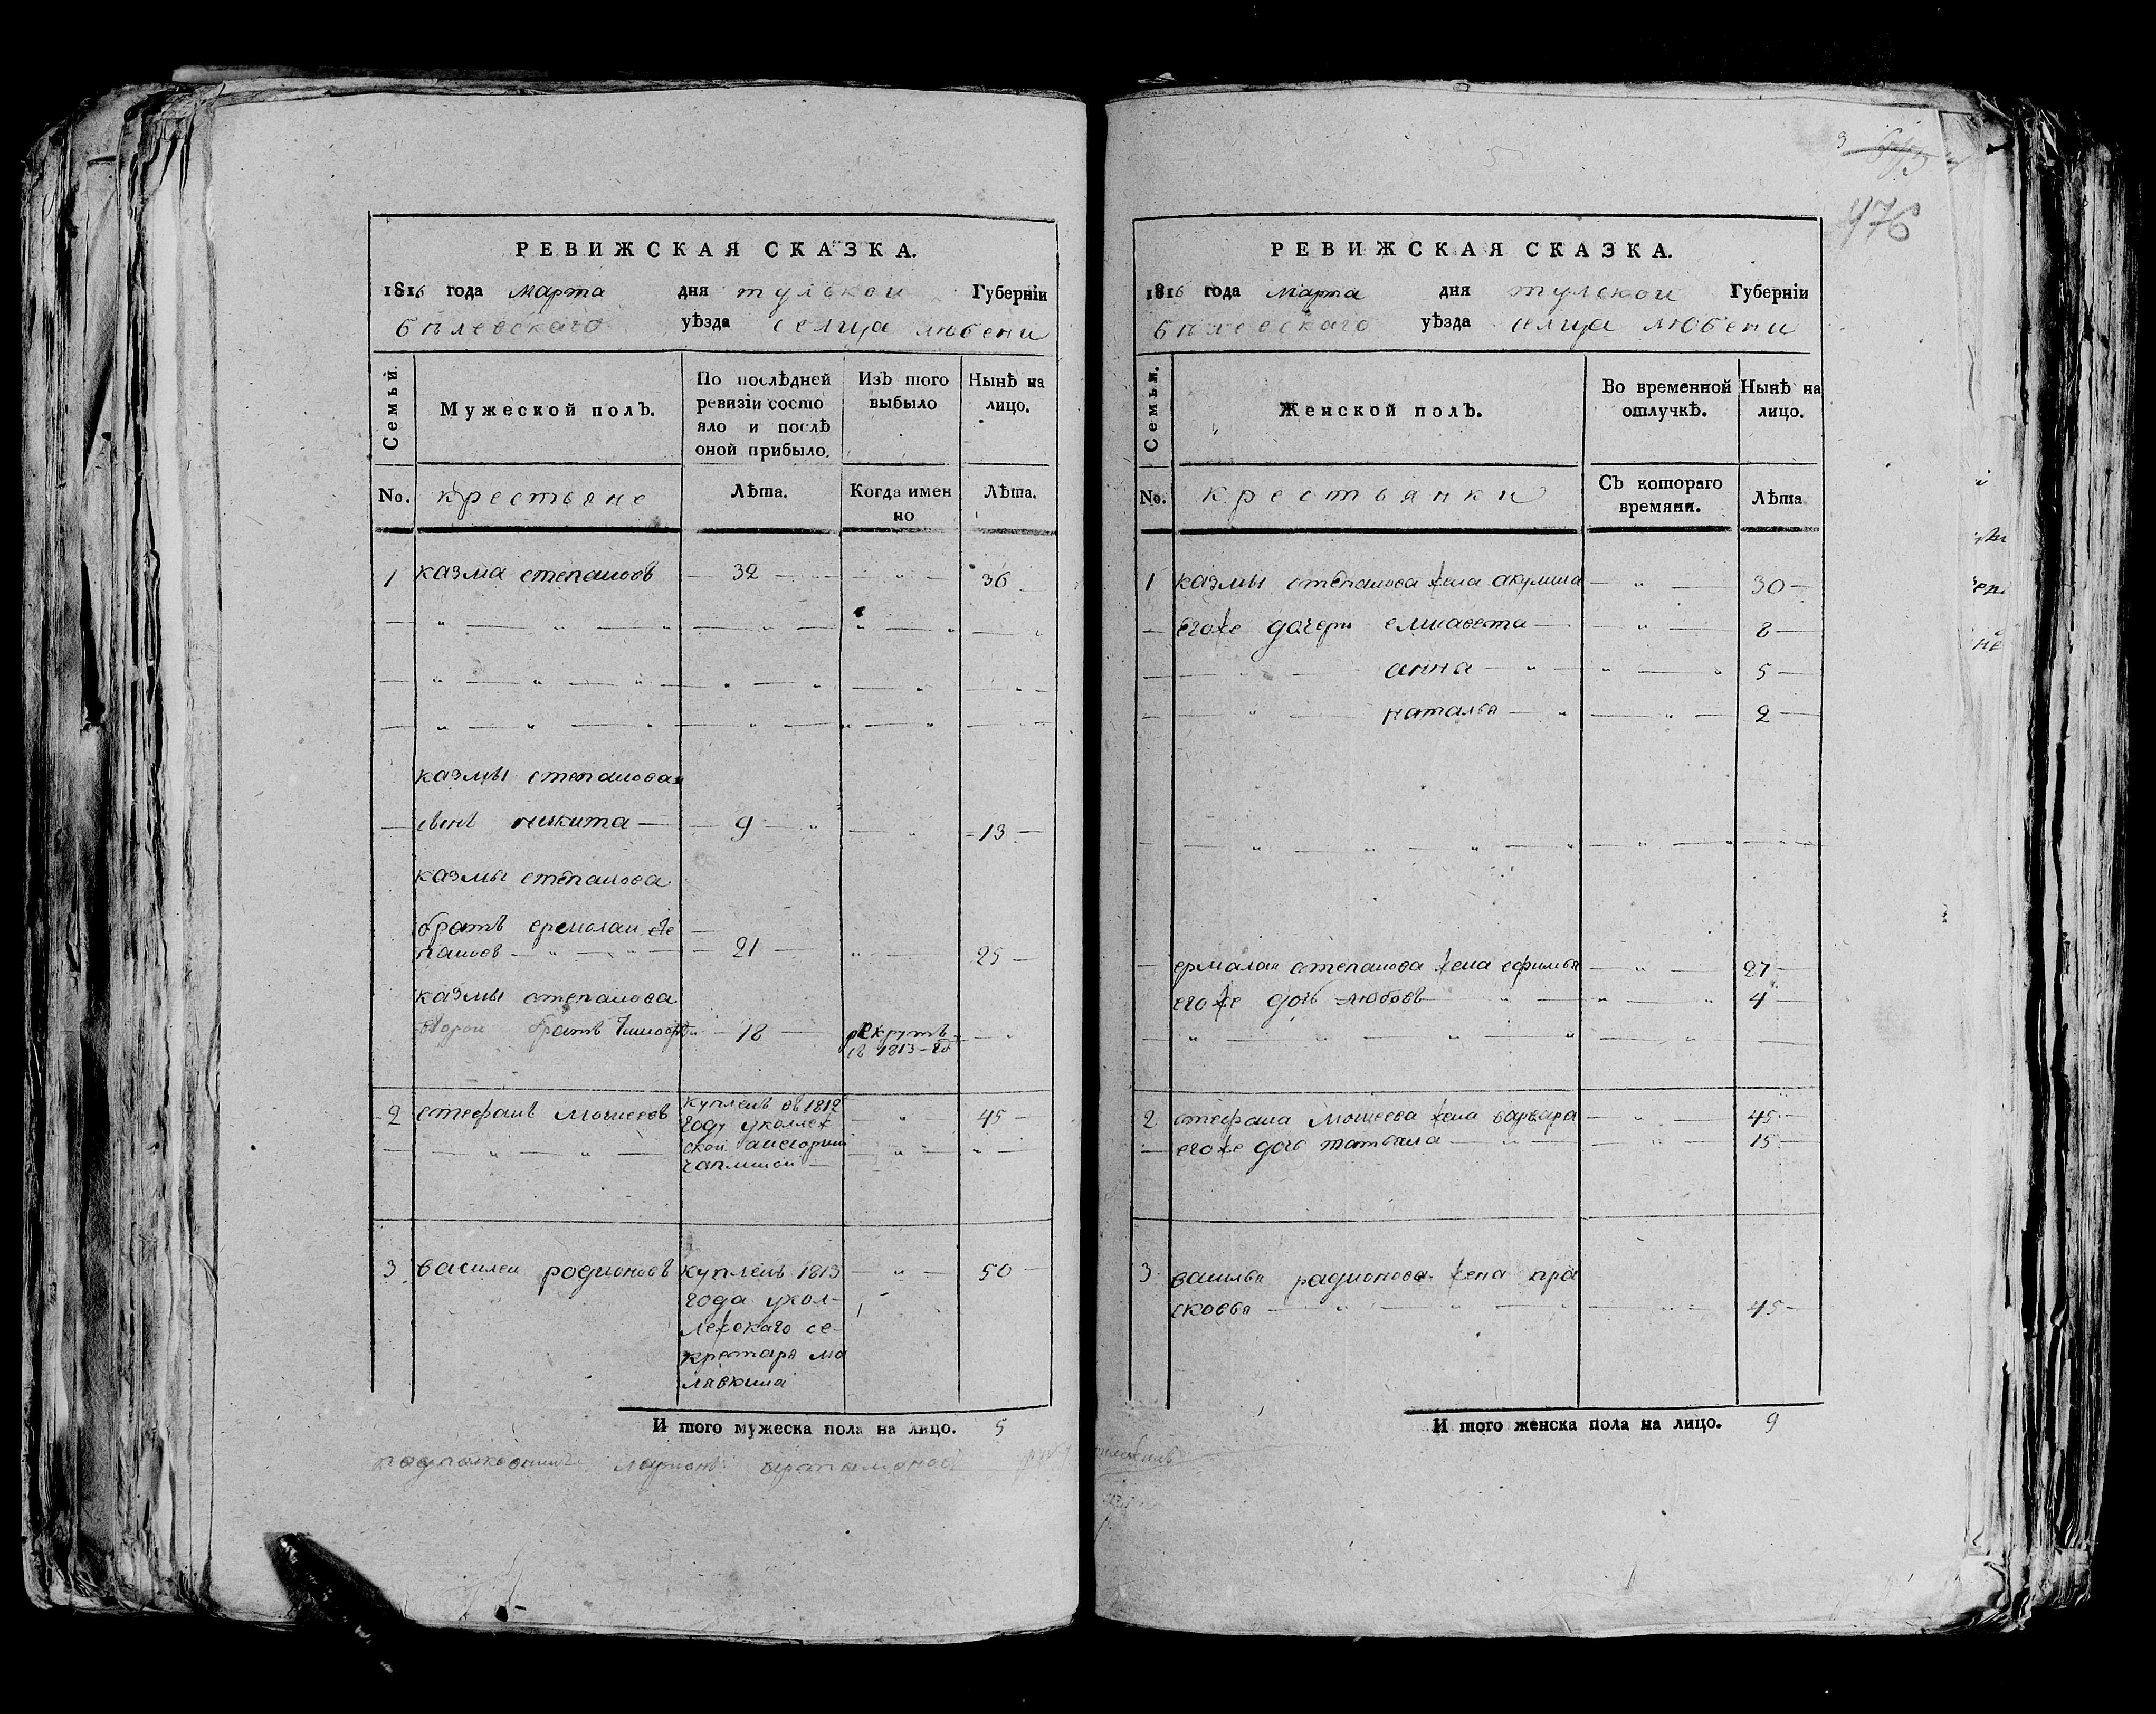 РЕВИЖСКАЯ СКАЗКА.
1816 года марта дня тульскои Губерніи
бѣлевскаго уѣзда селца любени
Семьи. Мужеской полъ. По послѣдней ревизіи состо яло и послѣ оной прибыло. Изъ того выбыло Нынѣ на лицо.
No. крестьяне Лѣта. Когда имен но Лѣта.
1 казма степановъ 32 36
казмы степанова
сынъ никита 9 13
казмы степанова
братъ ермолаи сте
пановъ 21 25
казмы степанова
второи братъ тимофеи 18 рекрутъ
въ 1813 го
2 стефанъ моисеевъ купленъ въ 1812 45
году у коллеж
скои асесорши
чаплинои
3 василеи родионовъ купленъ 1813 50
года у кол-
лежскаго се-
кретаря ма
лявкина
И того мужеска пола на лицо. 5
подполковникъ ларионъ артамоновъ
3
976
РЕВИЖСКАЯ СКАЗКА.
1816 года марта дня тулскои Губерніи
бѣлевскаго уѣзда селца любени
Семьи. Женской полъ. Во временной отлучкѣ. Нынѣ на лицо.
No. крестьянки Съ котораго времяни. Лѣта
1 казмы степанова жена акулина 30
егоже дочери елисавета 8
анна 5
наталья 2
ермалая степанова жена ефимья 27
егоже дочь любовь 4
2 стефана моисеева жена варвара 45
егоже дочь татьяна 15
3 василья радионова жена пра
сковья 45
И того женска пола на лицо. 9